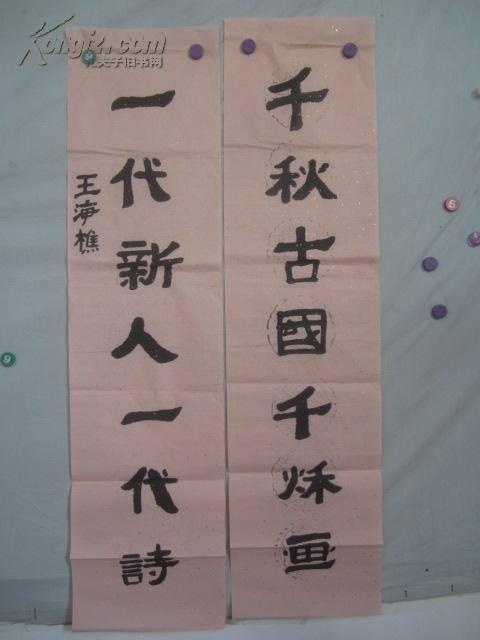 千秋古國千秌畫
一代新人一代詩
王海樵
Kongfz.com
孔夫子旧书网